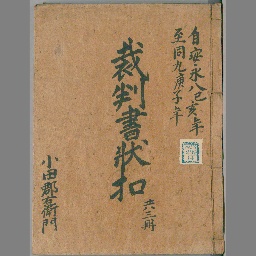 自安永八己亥年
至同九庚子年
裁判書状扣
共三冊
小田郡右衛門